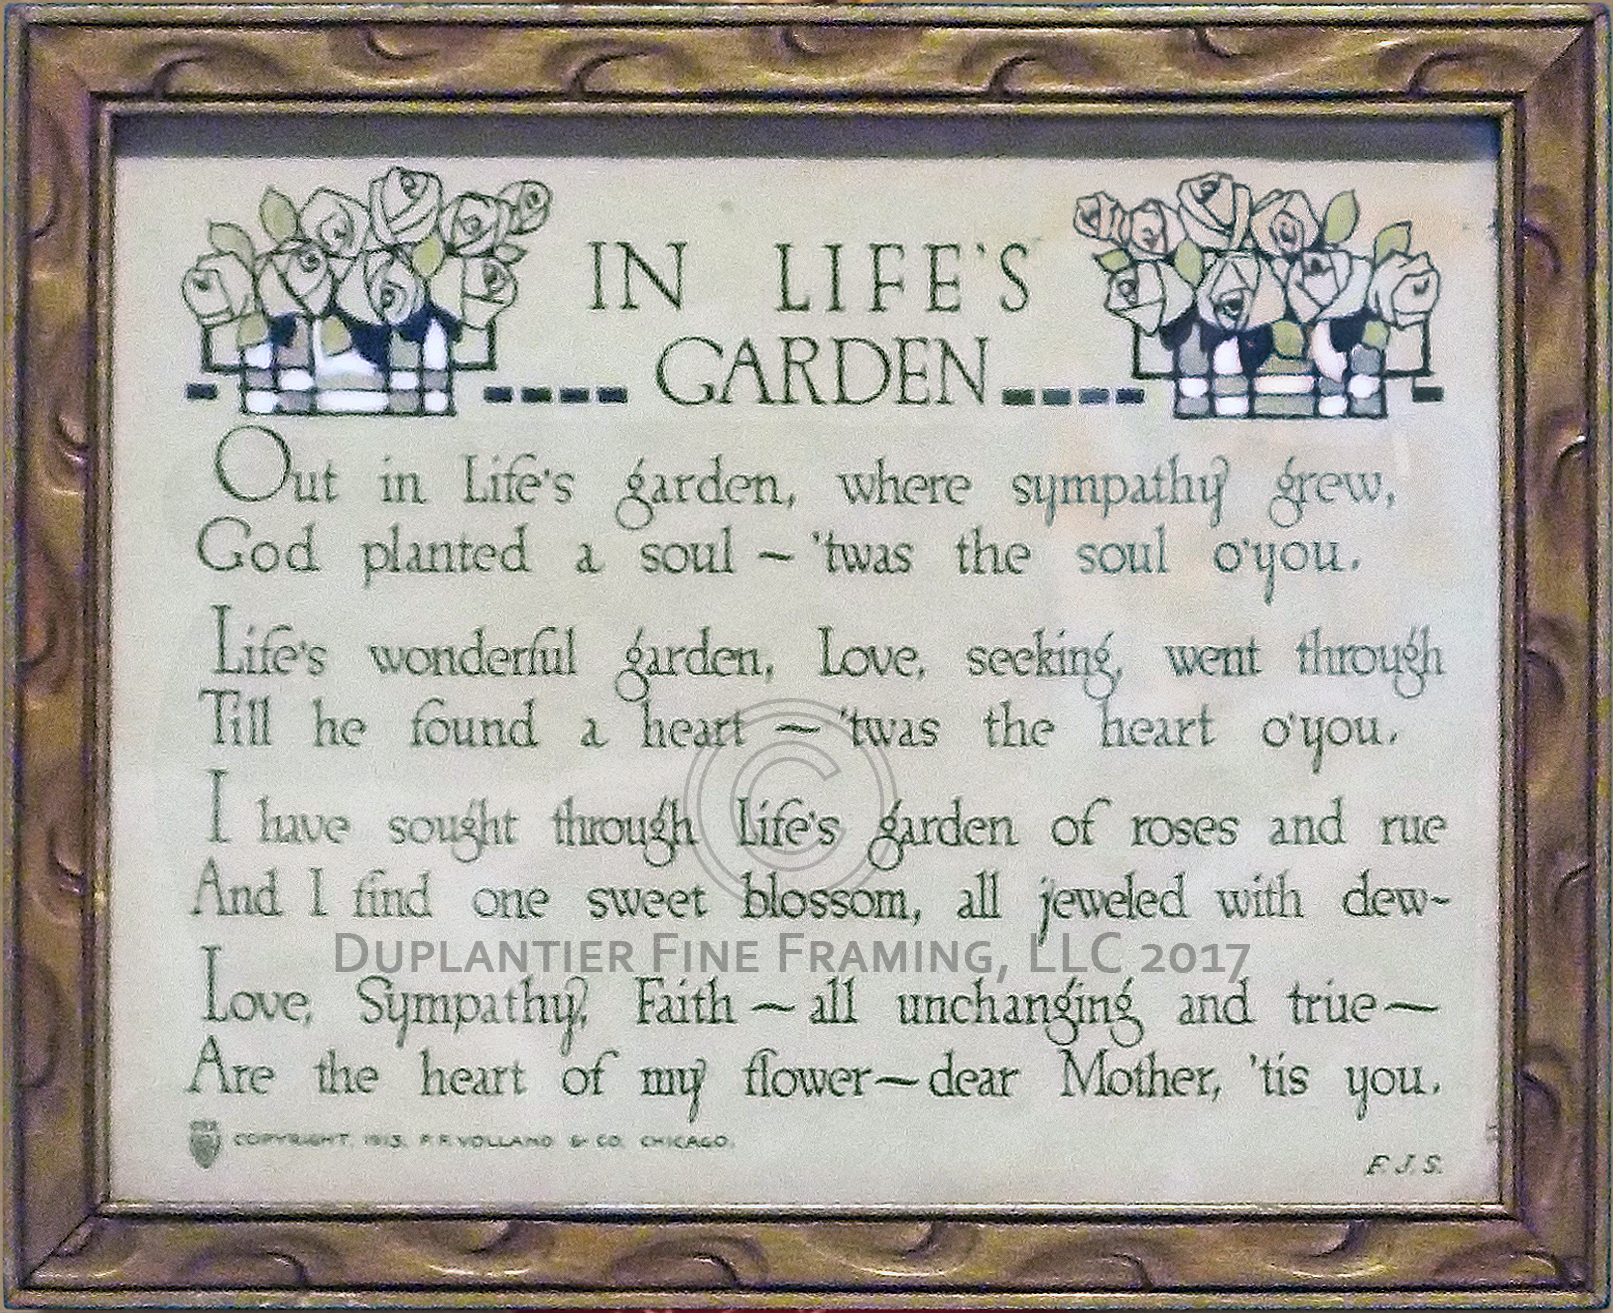 IN LIFE'S
GARDEN
Out in Life's garden, where sympathy grew,
God planted a soul — 'twas the soul o'you.
Life's wonderful garden, Love, seeking, went through
Till he found a heart — 'twas the heart o'you.
I have sought through Life's garden of roses and rue
And I find one sweet blossom, all jeweled with dew-
Love, Sympathy, Faith — all unchanging and true —
Are the heart of my flower — dear Mother, 'tis you.
COPYRIGHT, 1913, P. F. VOLLAND & CO. CHICAGO.
F. J. S.
©
DUPLANTIER FINE FRAMING, LLC 2017